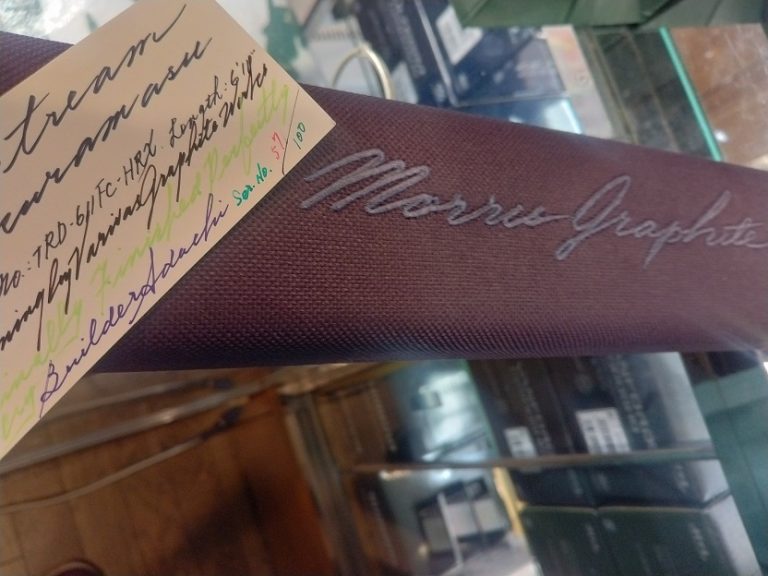 tream
uramasu
No.: TRD-611FC-HRX. Length: 6'11"
ning by Varivas Graphite Works
nally Finished Perfectly
Builder Adachi Ser.No. 57/100
Morris Graphite